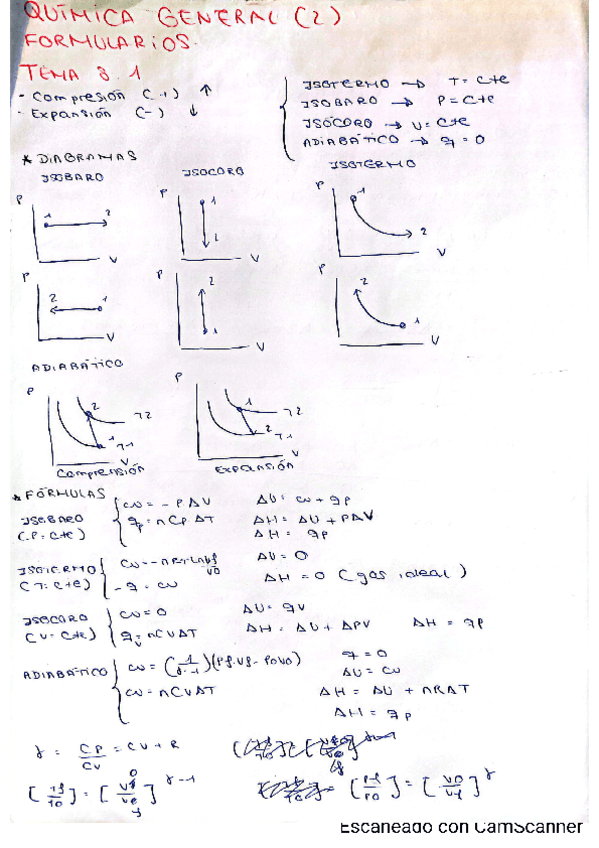 QUÍMICA GENERAL (2)
FORMULARIOS.
TEMA 8.1
- Compresión (+) ↑
- Expansión (-) ↓
ISOTERMO → T = Cte
ISOBARO → P = Cte
ISÓCORO → V = Cte
ADIABÁTICO → q = 0
* DIAGRAMAS
ISOBARO
ISOCORO
ISOTERMO
P 1 2 V
P 1 2 V
P 1 2 V
P 2 1 V
P 2 1 V
P 2 1 V
ADIABÁTICO
P 2 T2 1 T1 V
Comprensión
P 1 T2 2 T1
Expansión
* FÓRMULAS
ISOBARO (P = Cte)
W = - PΔV
q = nCpΔT
ΔU = W + qp
ΔH = ΔU + PΔV
ΔH = qp
ISOTERMO (T = Cte)
W = -nRT Ln Vf/V0
-q = W
ΔU = 0
ΔH = 0 (gas ideal)
ISOCORO (V = Cte)
W = 0
qv = nCVΔT
ΔU = qv
ΔH = ΔU + ΔPV
ΔH = qp
ADIABÁTICO
W = (1/γ-1)(Pf·Vf - P0V0)
W = nCVΔT
q = 0
ΔU = W
ΔH = ΔU + nRΔT
ΔH = qp
γ = CP/CV = CV + R
[Tf/T0] = [V0/Vf]^γ-1
[Pf/P0] = [V0/Vf]^γ
Escaneado con CamScanner